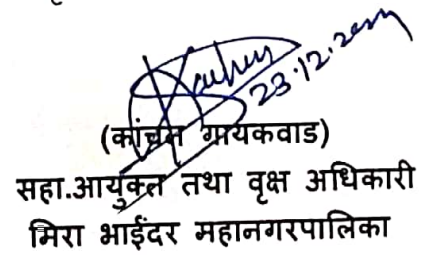 23.12.2024
(कांचन गायकवाड)
सहा.आयुक्त तथा वृक्ष अधिकारी
मिरा भाईंदर महानगरपालिका